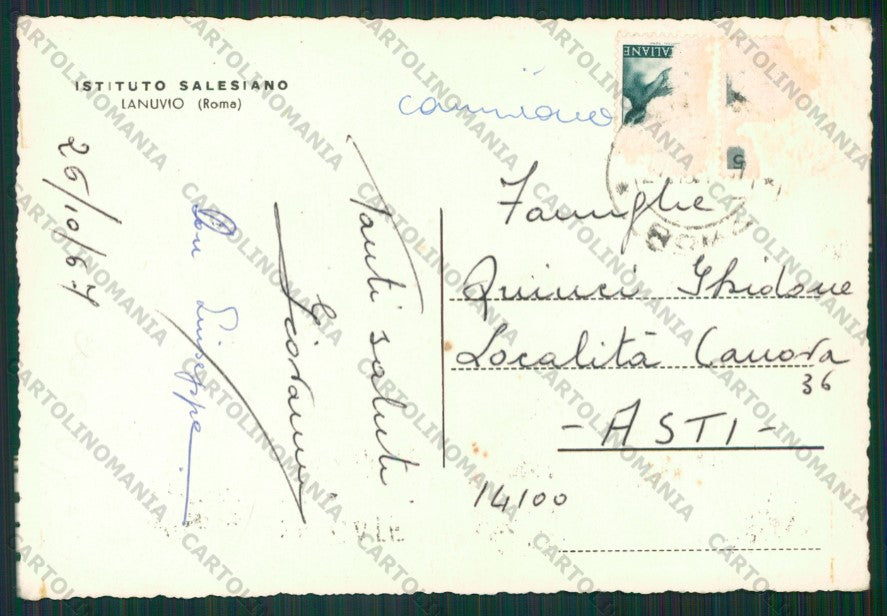 ISTITUTO SALESIANO
LANUVIO (Roma)
26/10/67
Tanti saluti
Giovanni
Don Giuseppe
ALIANE
5
Famiglie
Quinci Ghidone
Località Canova
36
- ASTI -
14100
CARTOLINOMANIA